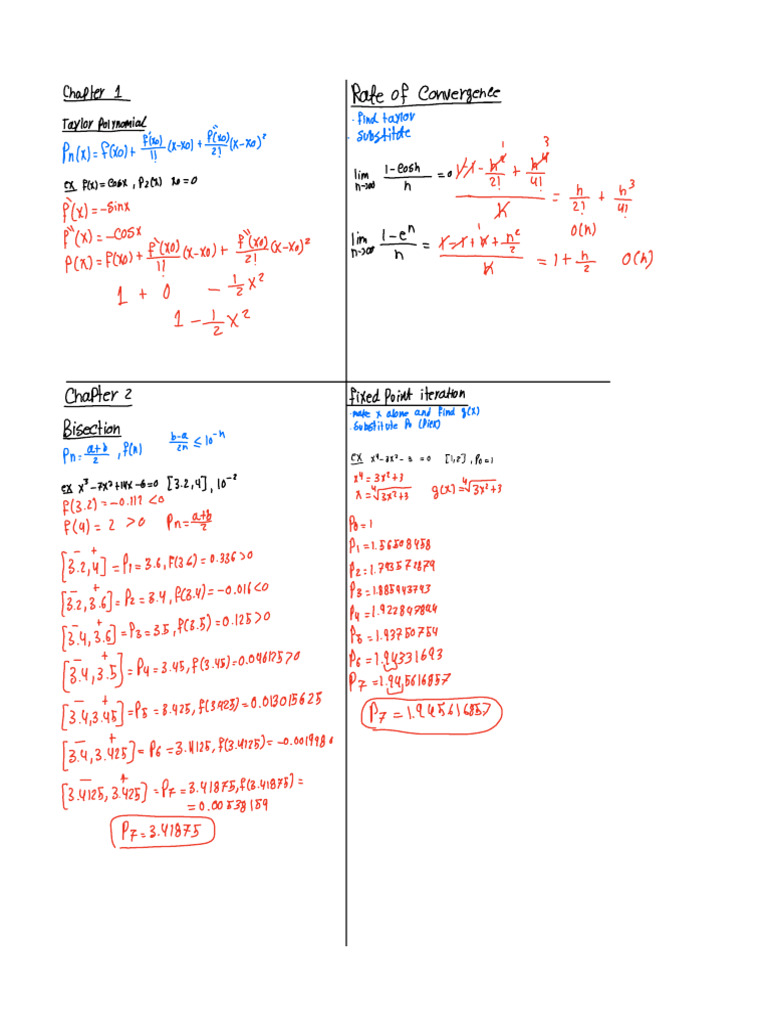 Chapter 1
Taylor Polynomial
Pn(x) = f(x0) + f'(x0)/1! (x-x0) + f''(x0)/2! (x-x0)²
ex f(x) = cosx, P2(x) x0=0
f'(x) = -sinx
f''(x) = -cosx
P(x) = f(x0) + f'(x0)/1! (x-x0) + f''(x0)/2! (x-x0)²
1 + 0 - 1/2 x²
1 - 1/2 x²
Rate of Convergence
· find taylor
· substitute
lim n→∞ (1-cosh)/h = 0
= h/2! + h³/4!
O(h)
lim n→∞ (1-eⁿ)/n =
= 1 + h/2 O(h)
Chapter 2
Bisection
Pn = (a+b)/2, f(n) (b-a)/2n ≤ 10⁻ⁿ
ex x³-7x²+14x-6=0 [3.2,4], 10⁻²
f(3.2) = -0.112 <0
f(4) = 2 >0 Pn = (a+b)/2
[3.2,4] = P1 = 3.6, f(3.6) = 0.336>0
[3.2,3.6] = P2 = 3.4, f(3.4) = -0.016<0
[3.4,3.6] = P3 = 3.5, f(3.5) = 0.125>0
[3.4,3.5] = P4 = 3.45, f(3.45) = 0.046125>0
[3.4,3.45] = P5 = 3.425, f(3.425) = 0.013015625
[3.4,3.425] = P6 = 3.4125, f(3.4125) =
[3.4125,3.425] = P7 = 3.41875, f(3.41875) =
= 0.00538159
P7 = 3.41875
fixed Point iteration
· make x alone and find g(x)
· substitute Po (Pick)
ex x⁴-3x²-3=0 [1,2], Po=1
x⁴ = 3x²+3
x = ⁴√3x²+3 g(x) = ⁴√3x²+3
P0 = 1
P1 = 1.56508458
P2 = 1.793572879
P3 = 1.885943743
P4 = 1.922847844
P5 = 1.93750754
P6 = 1.94331693
P7 = 1.945616857
P7 = 1.945616857